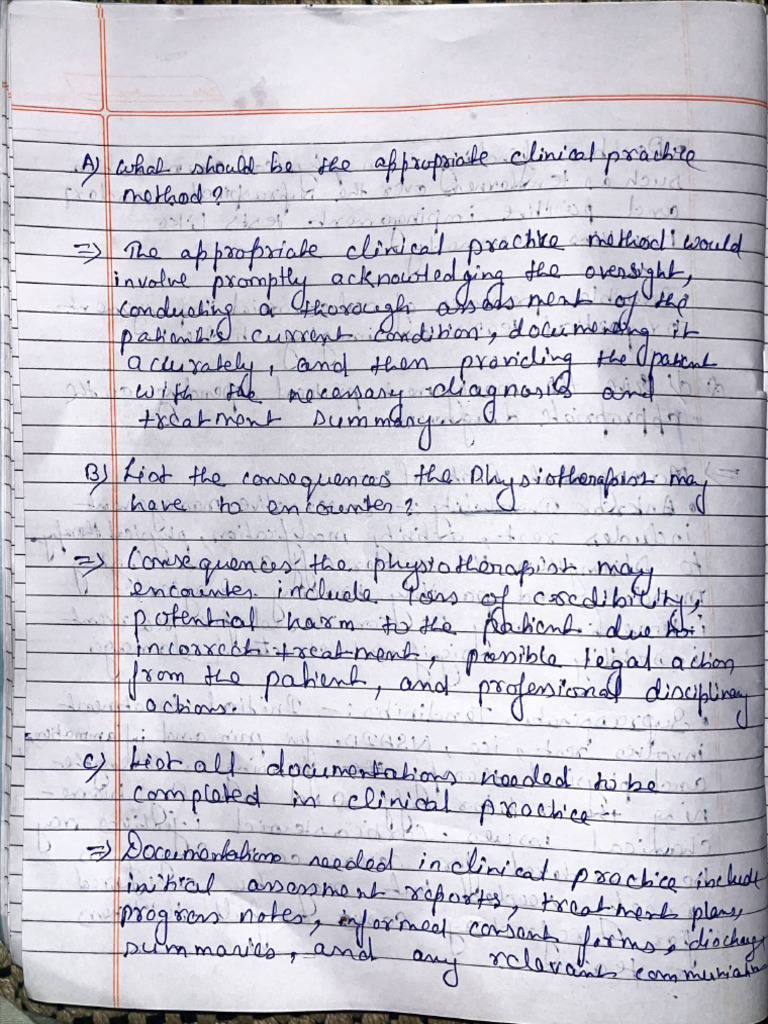 A) What should be the appropriate clinical practice
method?
=> The appropriate clinical practice method would
involve promptly acknowledging the oversight,
conducting a thorough assessment of the
patient's current condition, documenting it
accurately, and then providing the patient
with the necessary diagnosis and
treatment summary.
B) List the consequences the Physiotherapist may
have to encounter?
=> Consequences the physiotherapist may
encounter include loss of credibility,
potential harm to the patient due to
incorrect treatment, possible legal action
from the patient, and professional disciplinary
actions.
C) List all documentations needed to be
completed in clinical practice
=> Documentations needed in clinical practice include
initial assessment reports, treatment plans,
progress notes, informed consent forms, discharge
summaries, and any relevant communication